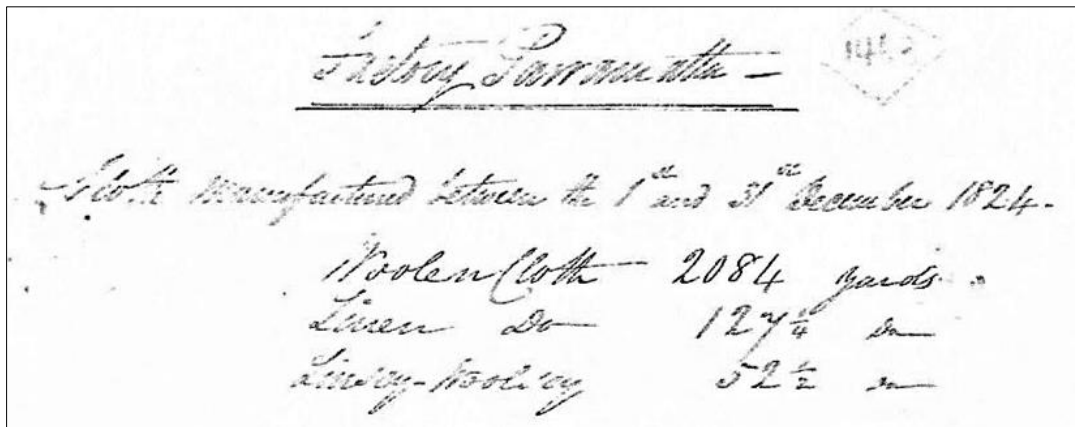 Factory Parramatta —
Cloth manufactured between the 1st and 31st December 1824.
Woolen Cloth 2084 yards.
Linen Do 127 1/4 Do
Linsey-Woolsey 52 1/2 Do